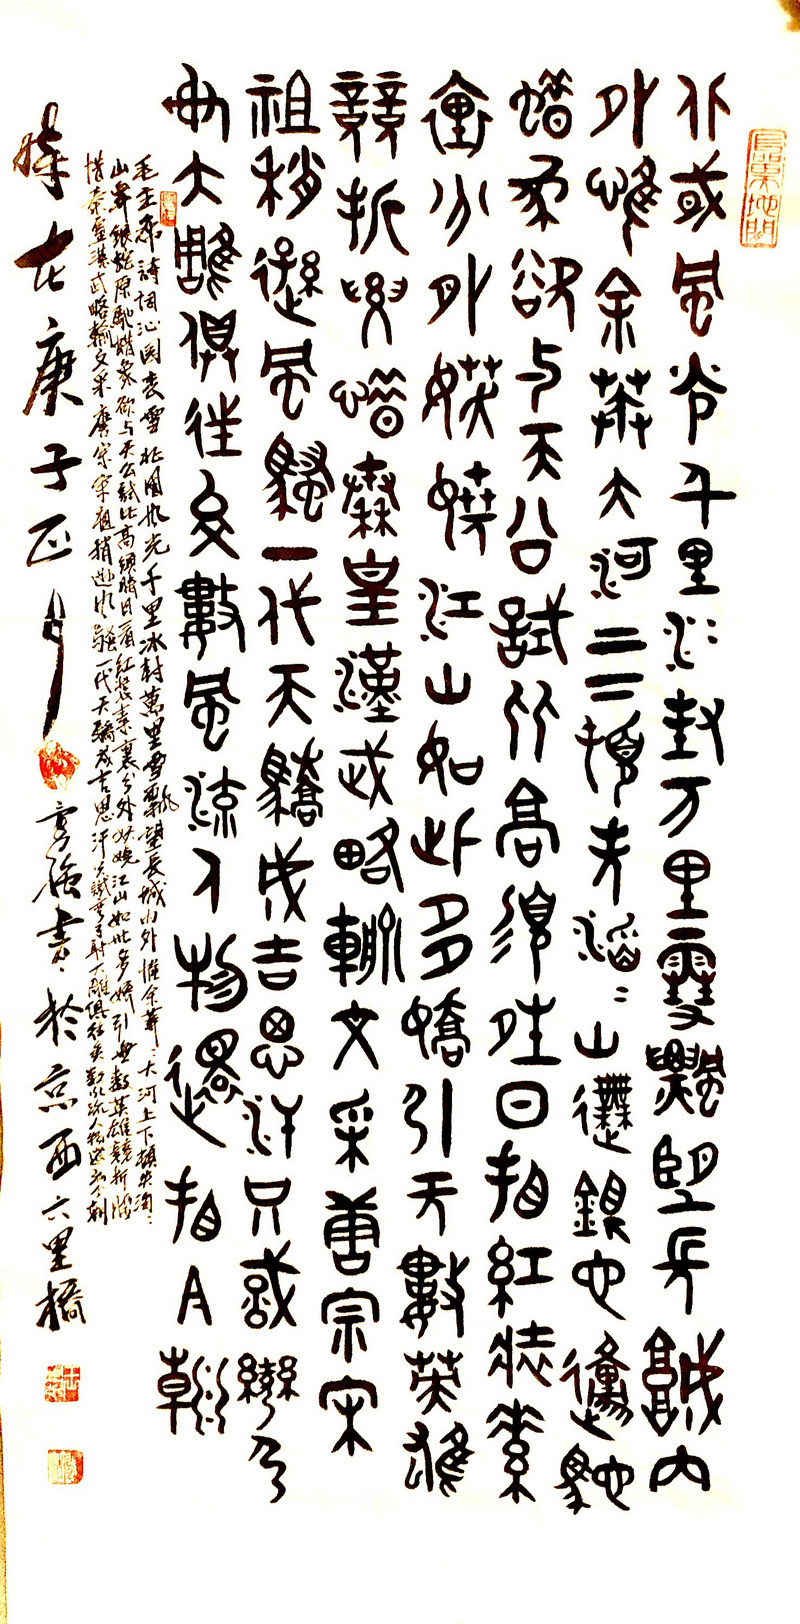 北國風光千里冰封万里雪飄望長城內
外惟余莽大河上下頓失滔〻山舞銀蛇原馳
蜡象欲与天公試比高須晴日看紅裝素
裹分外妖嬈江山如此多嬌引无數英雄
競折腰惜秦皇漢武略輸文采唐宗宋
祖稍遜風騷一代天驕成吉思汗只識彎弓
射大雕俱往矣數風流人物還看今朝
毛主席詩詞沁園春雪北國風光千里冰封萬里雪飄望長城內外惟余莽〻大河上下頓失滔〻
山舞銀蛇原馳蜡象欲与天公試比高須晴日看紅裝素裹分外妖嬈江山如此多嬌引無數英雄競折腰
惜秦皇漢武略輸文采唐宗宋祖稍遜風騷一代天驕成吉思汗只識彎弓射大雕俱往矣數風流人物還看今朝
歲在庚子正月 強書於京西六里橋